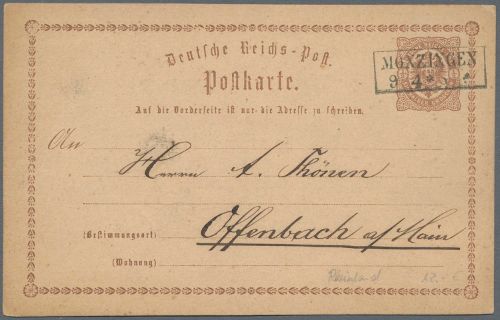 Deutsche Reichs-Post.
MONZINGEN
9 4
Postkarte.
Auf die Vorderseite ist nur die Adresse zu schreiben.
An
Herrn A. Thönen
Offenbach a/Main
(Bestimmungsort)
(Wohnung)
Rheinland 12,- €